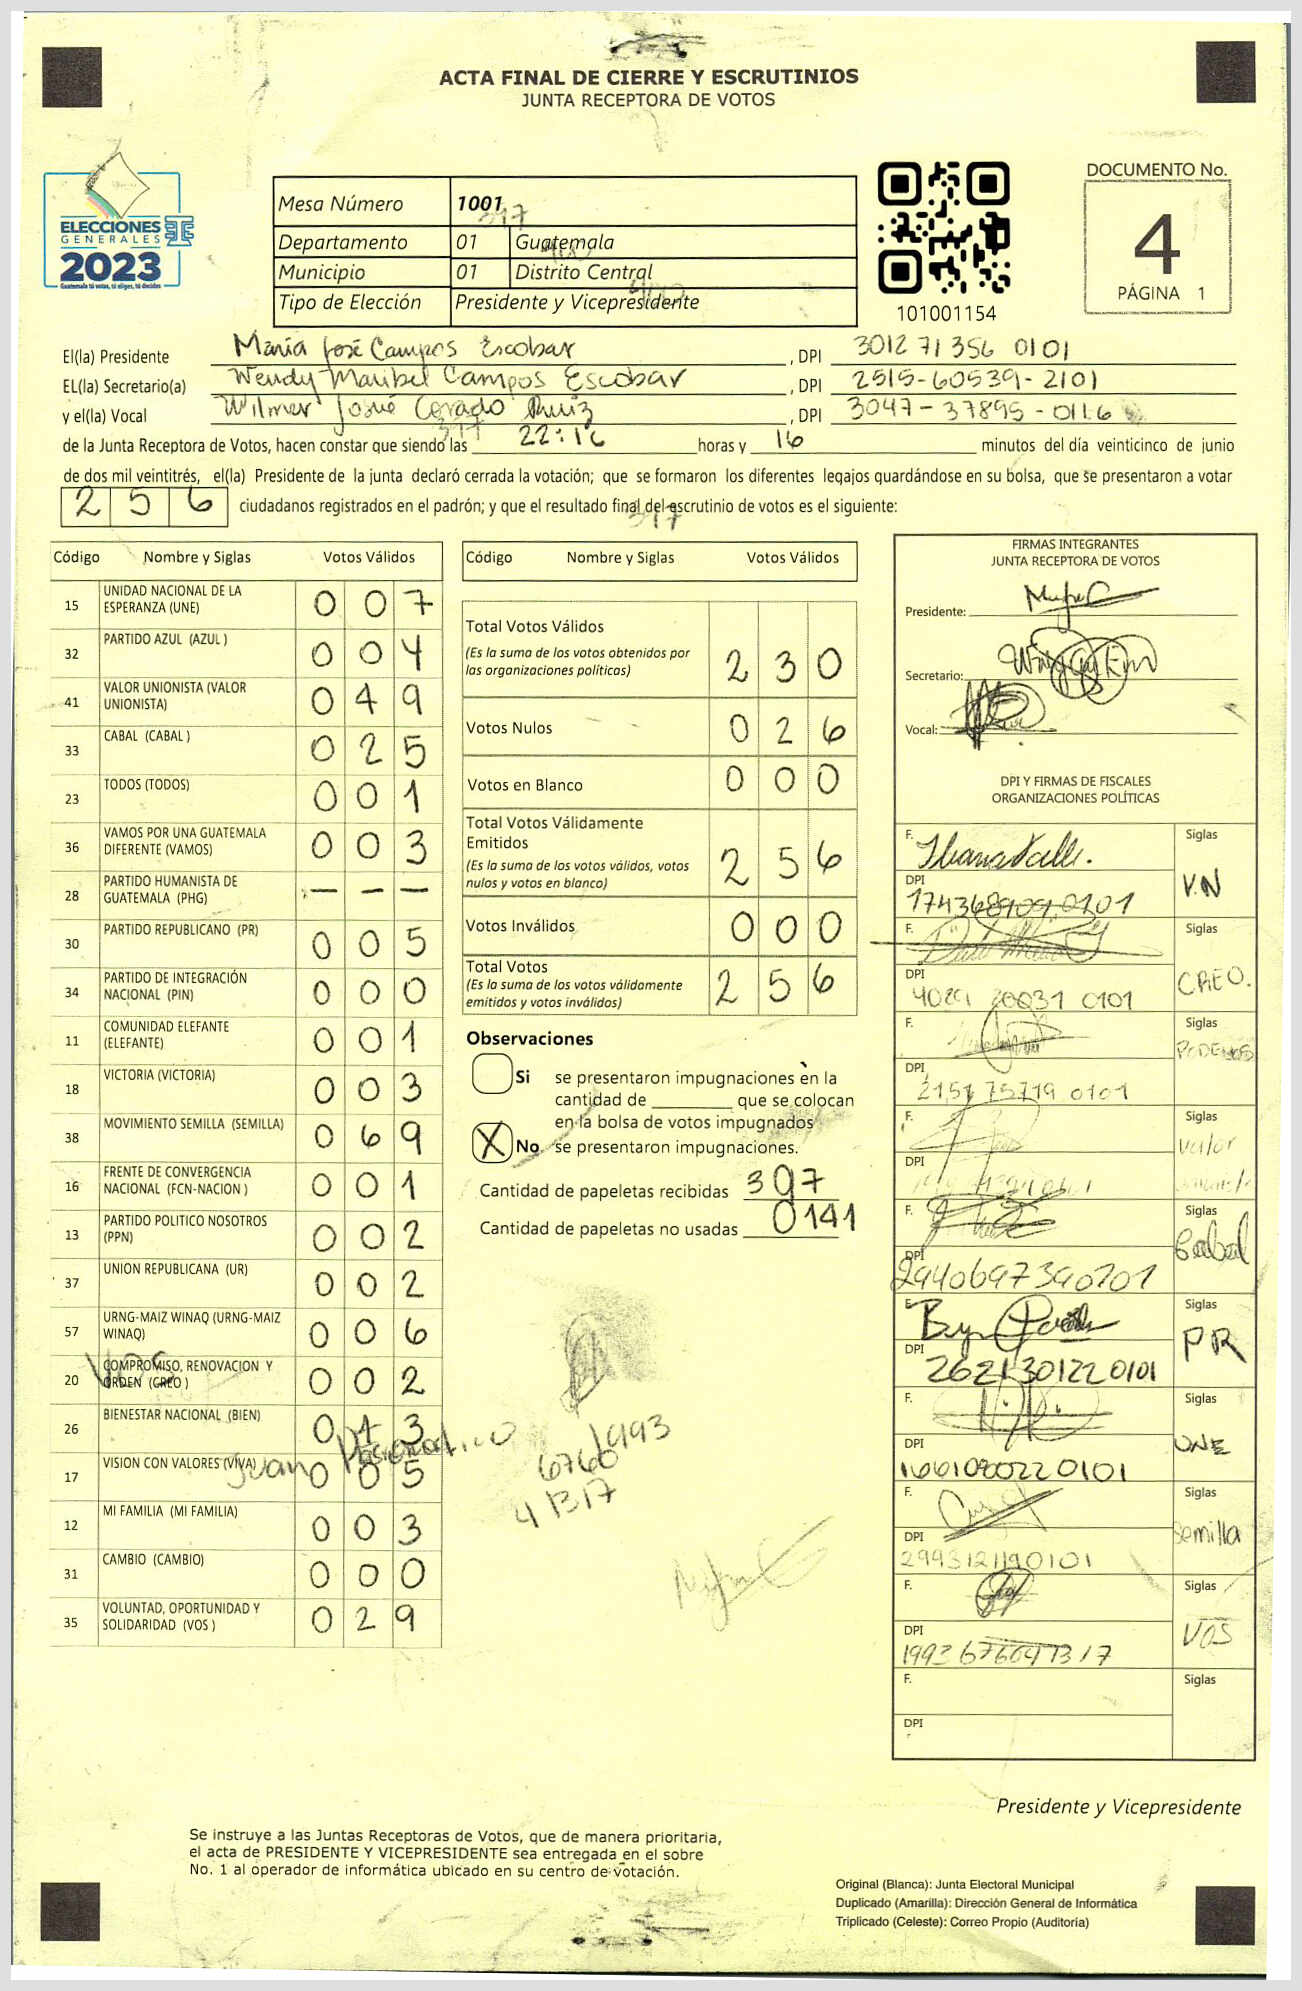 ACTA FINAL DE CIERRE Y ESCRUTINIOS
JUNTA RECEPTORA DE VOTOS
ELECCIONES
GENERALES
2023
Guatemala tú votas, tú eliges, tú decides
Mesa Número 1001
397
Departamento 01 Guatemala
400
Municipio 01 Distrito Central
400
Tipo de Elección Presidente y Vicepresidente
101001154
DOCUMENTO No.
4
PÁGINA 1
El(la) Presidente María José Campos Escobar , DPI 3012 71356 0101
EL(la) Secretario(a) Wendy Maribel Campos Escobar , DPI 2515-60539-2101
y el(la) Vocal Wilmer Josué Corado Ruiz , DPI 3047-37895-0116
397
de la Junta Receptora de Votos, hacen constar que siendo las 22:16 horas y 16 minutos del día veinticinco de junio
de dos mil veintitrés, el(la) Presidente de la junta declaró cerrada la votación; que se formaron los diferentes legajos guardándose en su bolsa, que se presentaron a votar
256 ciudadanos registrados en el padrón; y que el resultado final del escrutinio de votos es el siguiente:
397
Código Nombre y Siglas Votos Válidos
15 UNIDAD NACIONAL DE LA
ESPERANZA (UNE) 0 0 7
32 PARTIDO AZUL (AZUL ) 0 0 4
41 VALOR UNIONISTA (VALOR
UNIONISTA) 0 4 9
33 CABAL (CABAL ) 0 2 5
23 TODOS (TODOS) 0 0 1
36 VAMOS POR UNA GUATEMALA
DIFERENTE (VAMOS) 0 0 3
28 PARTIDO HUMANISTA DE
GUATEMALA (PHG) – – –
30 PARTIDO REPUBLICANO (PR) 0 0 5
34 PARTIDO DE INTEGRACIÓN
NACIONAL (PIN) 0 0 0
11 COMUNIDAD ELEFANTE
(ELEFANTE) 0 0 1
18 VICTORIA (VICTORIA) 0 0 3
38 MOVIMIENTO SEMILLA (SEMILLA) 0 6 9
16 FRENTE DE CONVERGENCIA
NACIONAL (FCN-NACION ) 0 0 1
13 PARTIDO POLITICO NOSOTROS
(PPN) 0 0 2
37 UNION REPUBLICANA (UR) 0 0 2
57 URNG-MAIZ WINAQ (URNG-MAIZ
WINAQ) 0 0 6
20 COMPROMISO, RENOVACION Y
ORDEN (CREO ) 0 0 2
VOS
26 BIENESTAR NACIONAL (BIEN) 0 1 3
17 VISION CON VALORES (VIVA) 0 0 5
Juan
12 MI FAMILIA (MI FAMILIA) 0 0 3
31 CAMBIO (CAMBIO) 0 0 0
35 VOLUNTAD, OPORTUNIDAD Y
SOLIDARIDAD (VOS ) 0 2 9
Código Nombre y Siglas Votos Válidos
Total Votos Válidos
(Es la suma de los votos obtenidos por
las organizaciones políticas) 2 3 0
Votos Nulos 0 2 6
Votos en Blanco 0 0 0
Total Votos Válidamente
Emitidos
(Es la suma de los votos válidos, votos
nulos y votos en blanco) 2 5 6
Votos Inválidos 0 0 0
Total Votos
(Es la suma de los votos válidamente
emitidos y votos inválidos) 2 5 6
Observaciones
Si se presentaron impugnaciones en la
cantidad de que se colocan
en la bolsa de votos impugnados
X No se presentaron impugnaciones.
Cantidad de papeletas recibidas 397
Cantidad de papeletas no usadas 0141
1993
6760
41317
FIRMAS INTEGRANTES
JUNTA RECEPTORA DE VOTOS
Presidente:
Secretario:
Vocal:
DPI Y FIRMAS DE FISCALES
ORGANIZACIONES POLÍTICAS
F. Siglas
V.N
DPI
174368909 0101
F. Siglas
CREO.
DPI
4029 20031 0101
F. Siglas
PODEMOS
DPI
2151 75719 0101
F. Siglas
Valor
DPI
F. Siglas
Cabal
DPI
2940697390101
F. Siglas
PR
DPI
2621301220101
F. Siglas
UNE
DPI
1661090220101
F. Siglas
Semilla
DPI
2993121190101
F. Siglas
VOS
DPI
1993676041317
F. Siglas
DPI
Presidente y Vicepresidente
Se instruye a las Juntas Receptoras de Votos, que de manera prioritaria,
el acta de PRESIDENTE Y VICEPRESIDENTE sea entregada en el sobre
No. 1 al operador de informática ubicado en su centro de votación.
Original (Blanca): Junta Electoral Municipal
Duplicado (Amarilla): Dirección General de Informática
Triplicado (Celeste): Correo Propio (Auditoría)